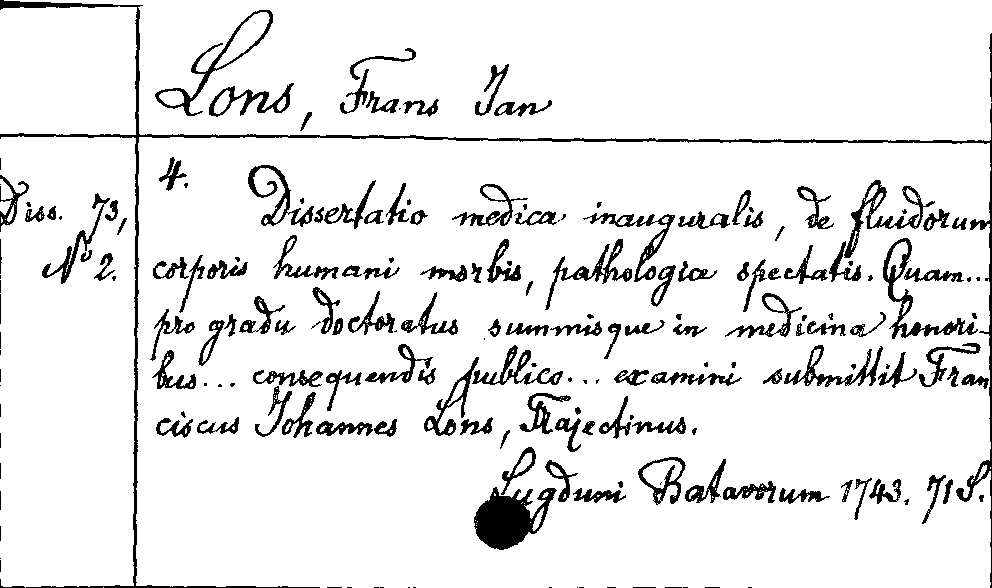 Lons, Frans Jan
4.
Diss. 73,
No 2.
Dissertatio medica inauguralis, de fluidorum
corporis humani morbis, pathologice spectatis. Quam...
pro gradu doctoratus summisque in medicina honori-
bus... consequendis publico... examini submittit Fran
ciscus Johannes Lons, Trajectinus.
Lugduni Batavorum 1743. 71 S.